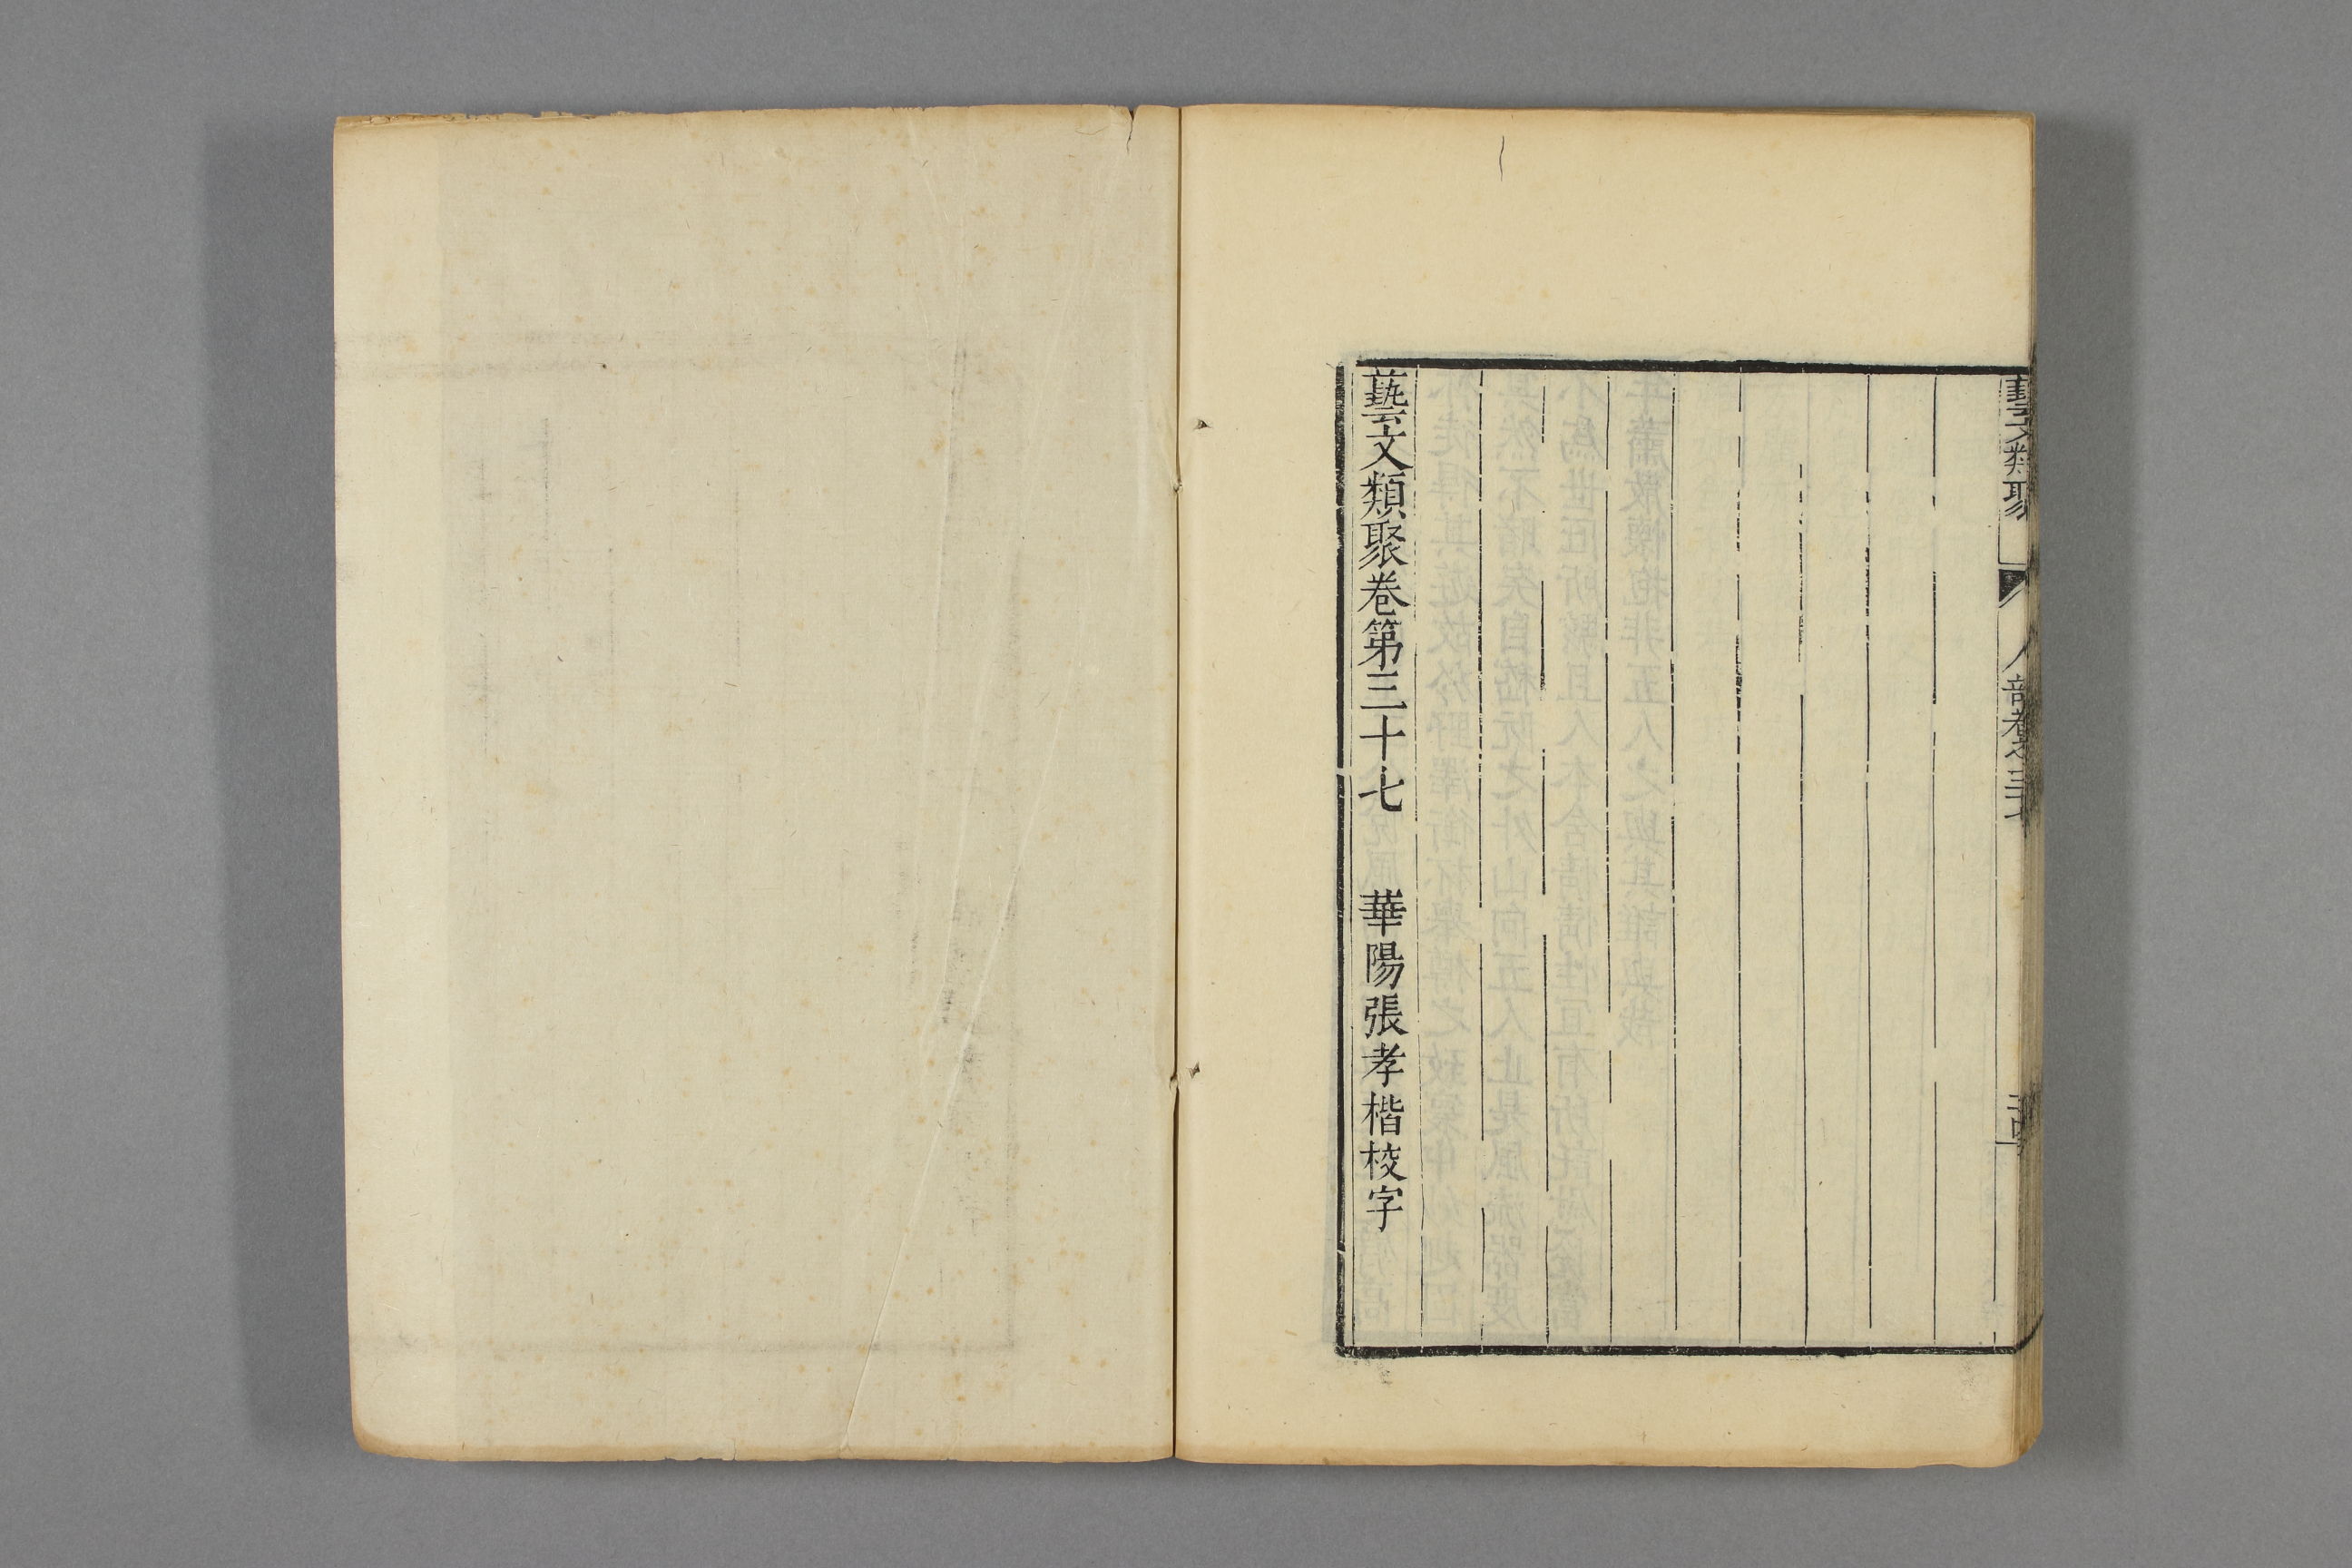 藝文類聚 人部卷之三十七
藝文類聚卷第三十七 華陽張孝楷校字